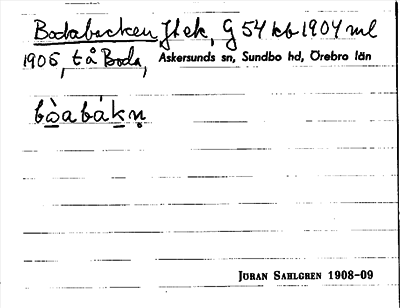 Bodabacken Jl ek, G 54 kb 1904 ml
1906, t å Boda, Askersunds sn, Sundbo hd, Örebro län
bòabákn̥
JÖRAN SAHLGREN 1908-09